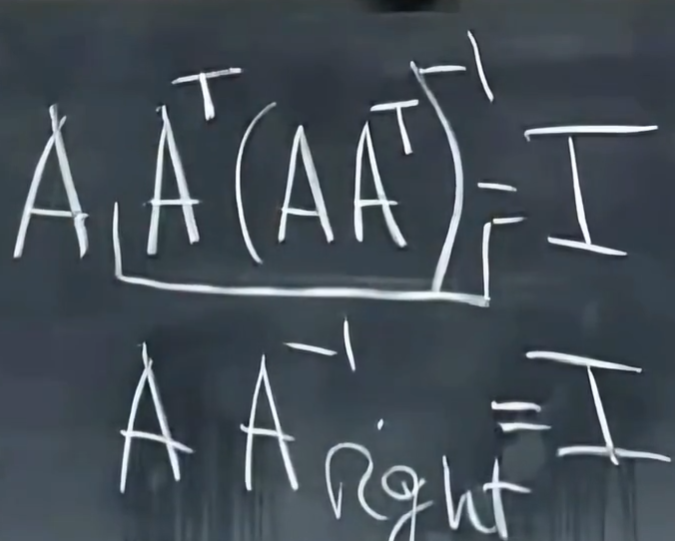 A Aᵀ(A Aᵀ)⁻¹ = I
A A⁻¹right = I